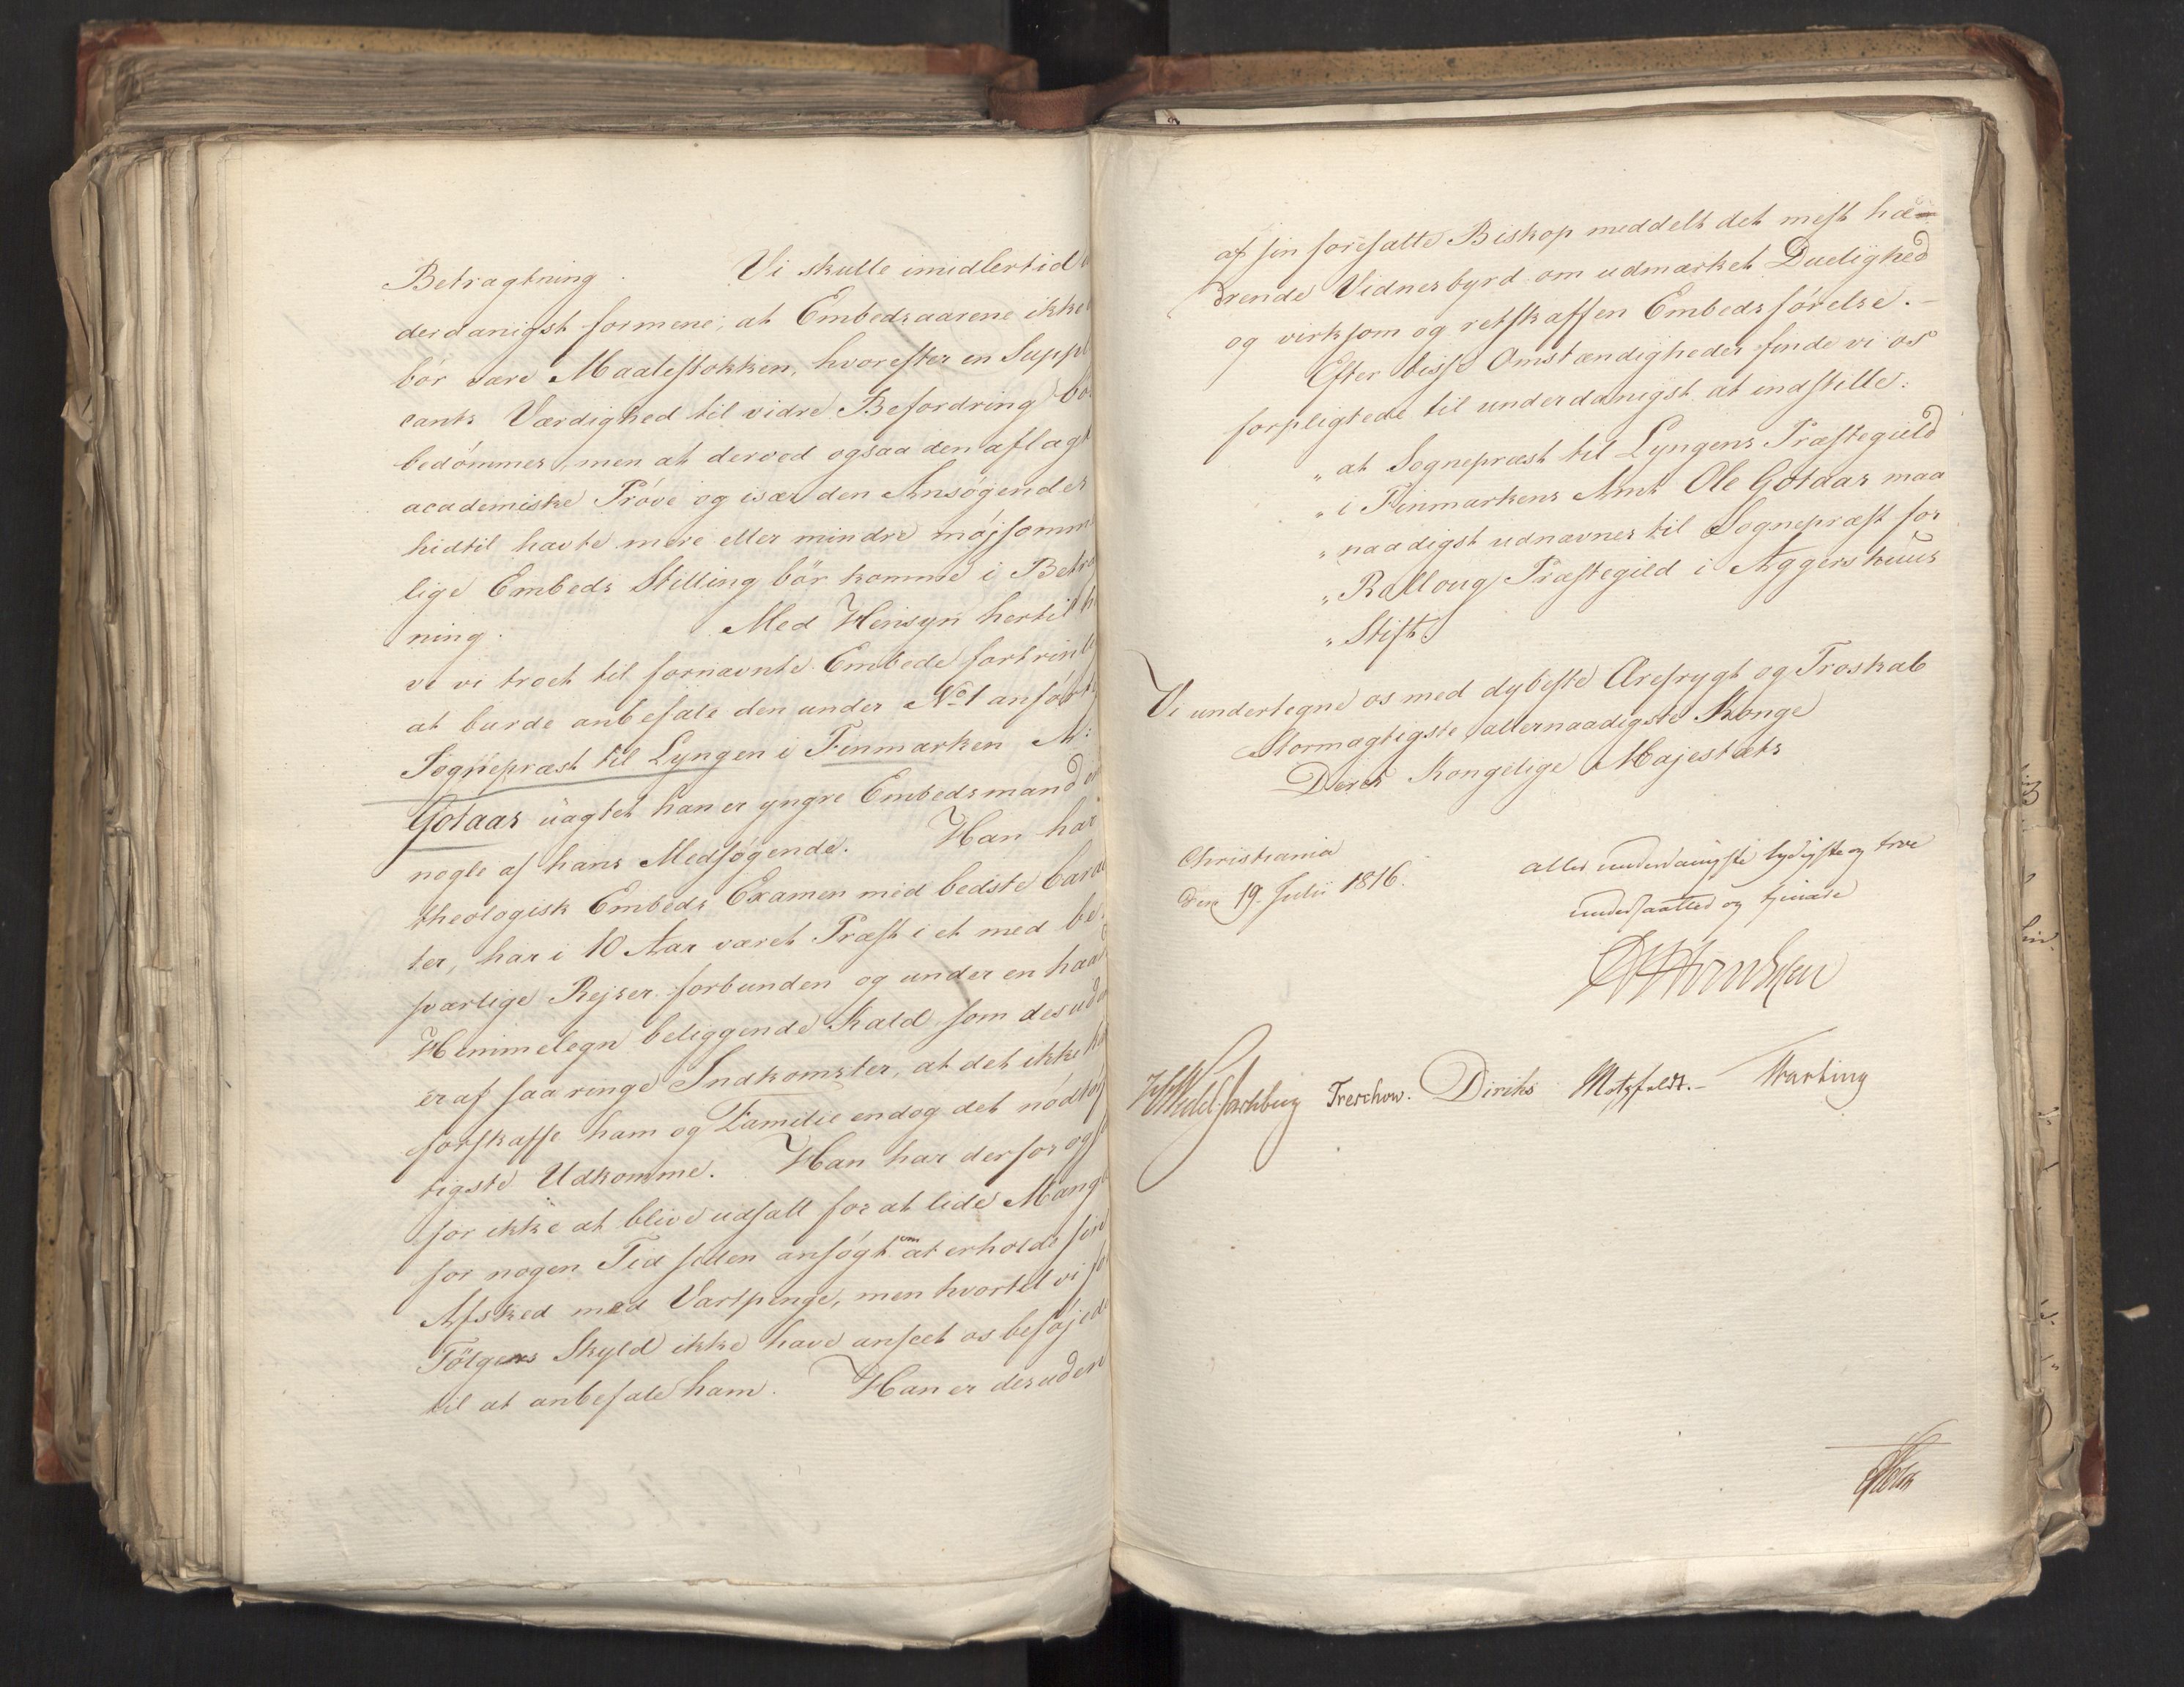 Betragtning. Vi skulle imidlertid
derdanigst formene, at Embedsaarene ikke
bör være Maalestokken, hvorefter en Suppl
cants Værdighed til vidre Befordring bö
bedömmes, men at derved ogsaa den aflagt
academiske Pröve og især den Ansögendes
hidtil havte mere eller mindre möjsomme
lige Embeds Stilling bör komme i Betra
ning. Med Hensyn hertil h
ve vi troet til fornævnte Embede fortrinl
at burde anbefale den under No 1 anfört
Sognepræst til Lyngen i Finmarken Mr
Götaas uagtet han er yngre Embedsmand
nogle af hans Medsögende. Han har
theologisk Embeds Examen med bedste Carac
ter, har i 10 Aar været Præst i et med be-
sværlige Rejser forbunden og under en haard
Himmelegn beliggende Kald som desud
er af saa ringe Indkomster, at det ikke k
forskaffe ham og Familie endog det nödtöf
tigste Udkomme. Han har derfor og
for ikke at blive udsatt for at lide Mang
for nogen Tid siden ansögt om at erholde sin
Afsked med Vartpenge, men hvortil vi fo
Fölgens Skyld ikke have anseet os beföjede
til at anbefale ham. Han er desuden
af sin foresatte Biskop meddelt det mest hæ-
drende Vidnesbyrd om udmærket Duelighed
og virksom og retskaffen Embedsförelse.-
Efter disse Omstændigheder finde vi os
forpligtede til underdanigst at indstille:
" at Sognepræst til Lyngens Præstegield
" i Finmarkens Amt Ole Götaas maa
" naadigst udnævnes til Sognepræst for
" Rollaug Præstegield i Aggershuus
" Stift
Vi undertegne os med dybeste Ærefrygt og Troskab
Stormægtigste allernaadigste Konge
Deres Kongelige Majestæts
Christiania
den 19 Julii 1816.
allerunderdanigste lydigste og troe
undersaatter og tjenere
HWedel Jarlsberg Treschow. Diriks Motzfeldt.- Harbing